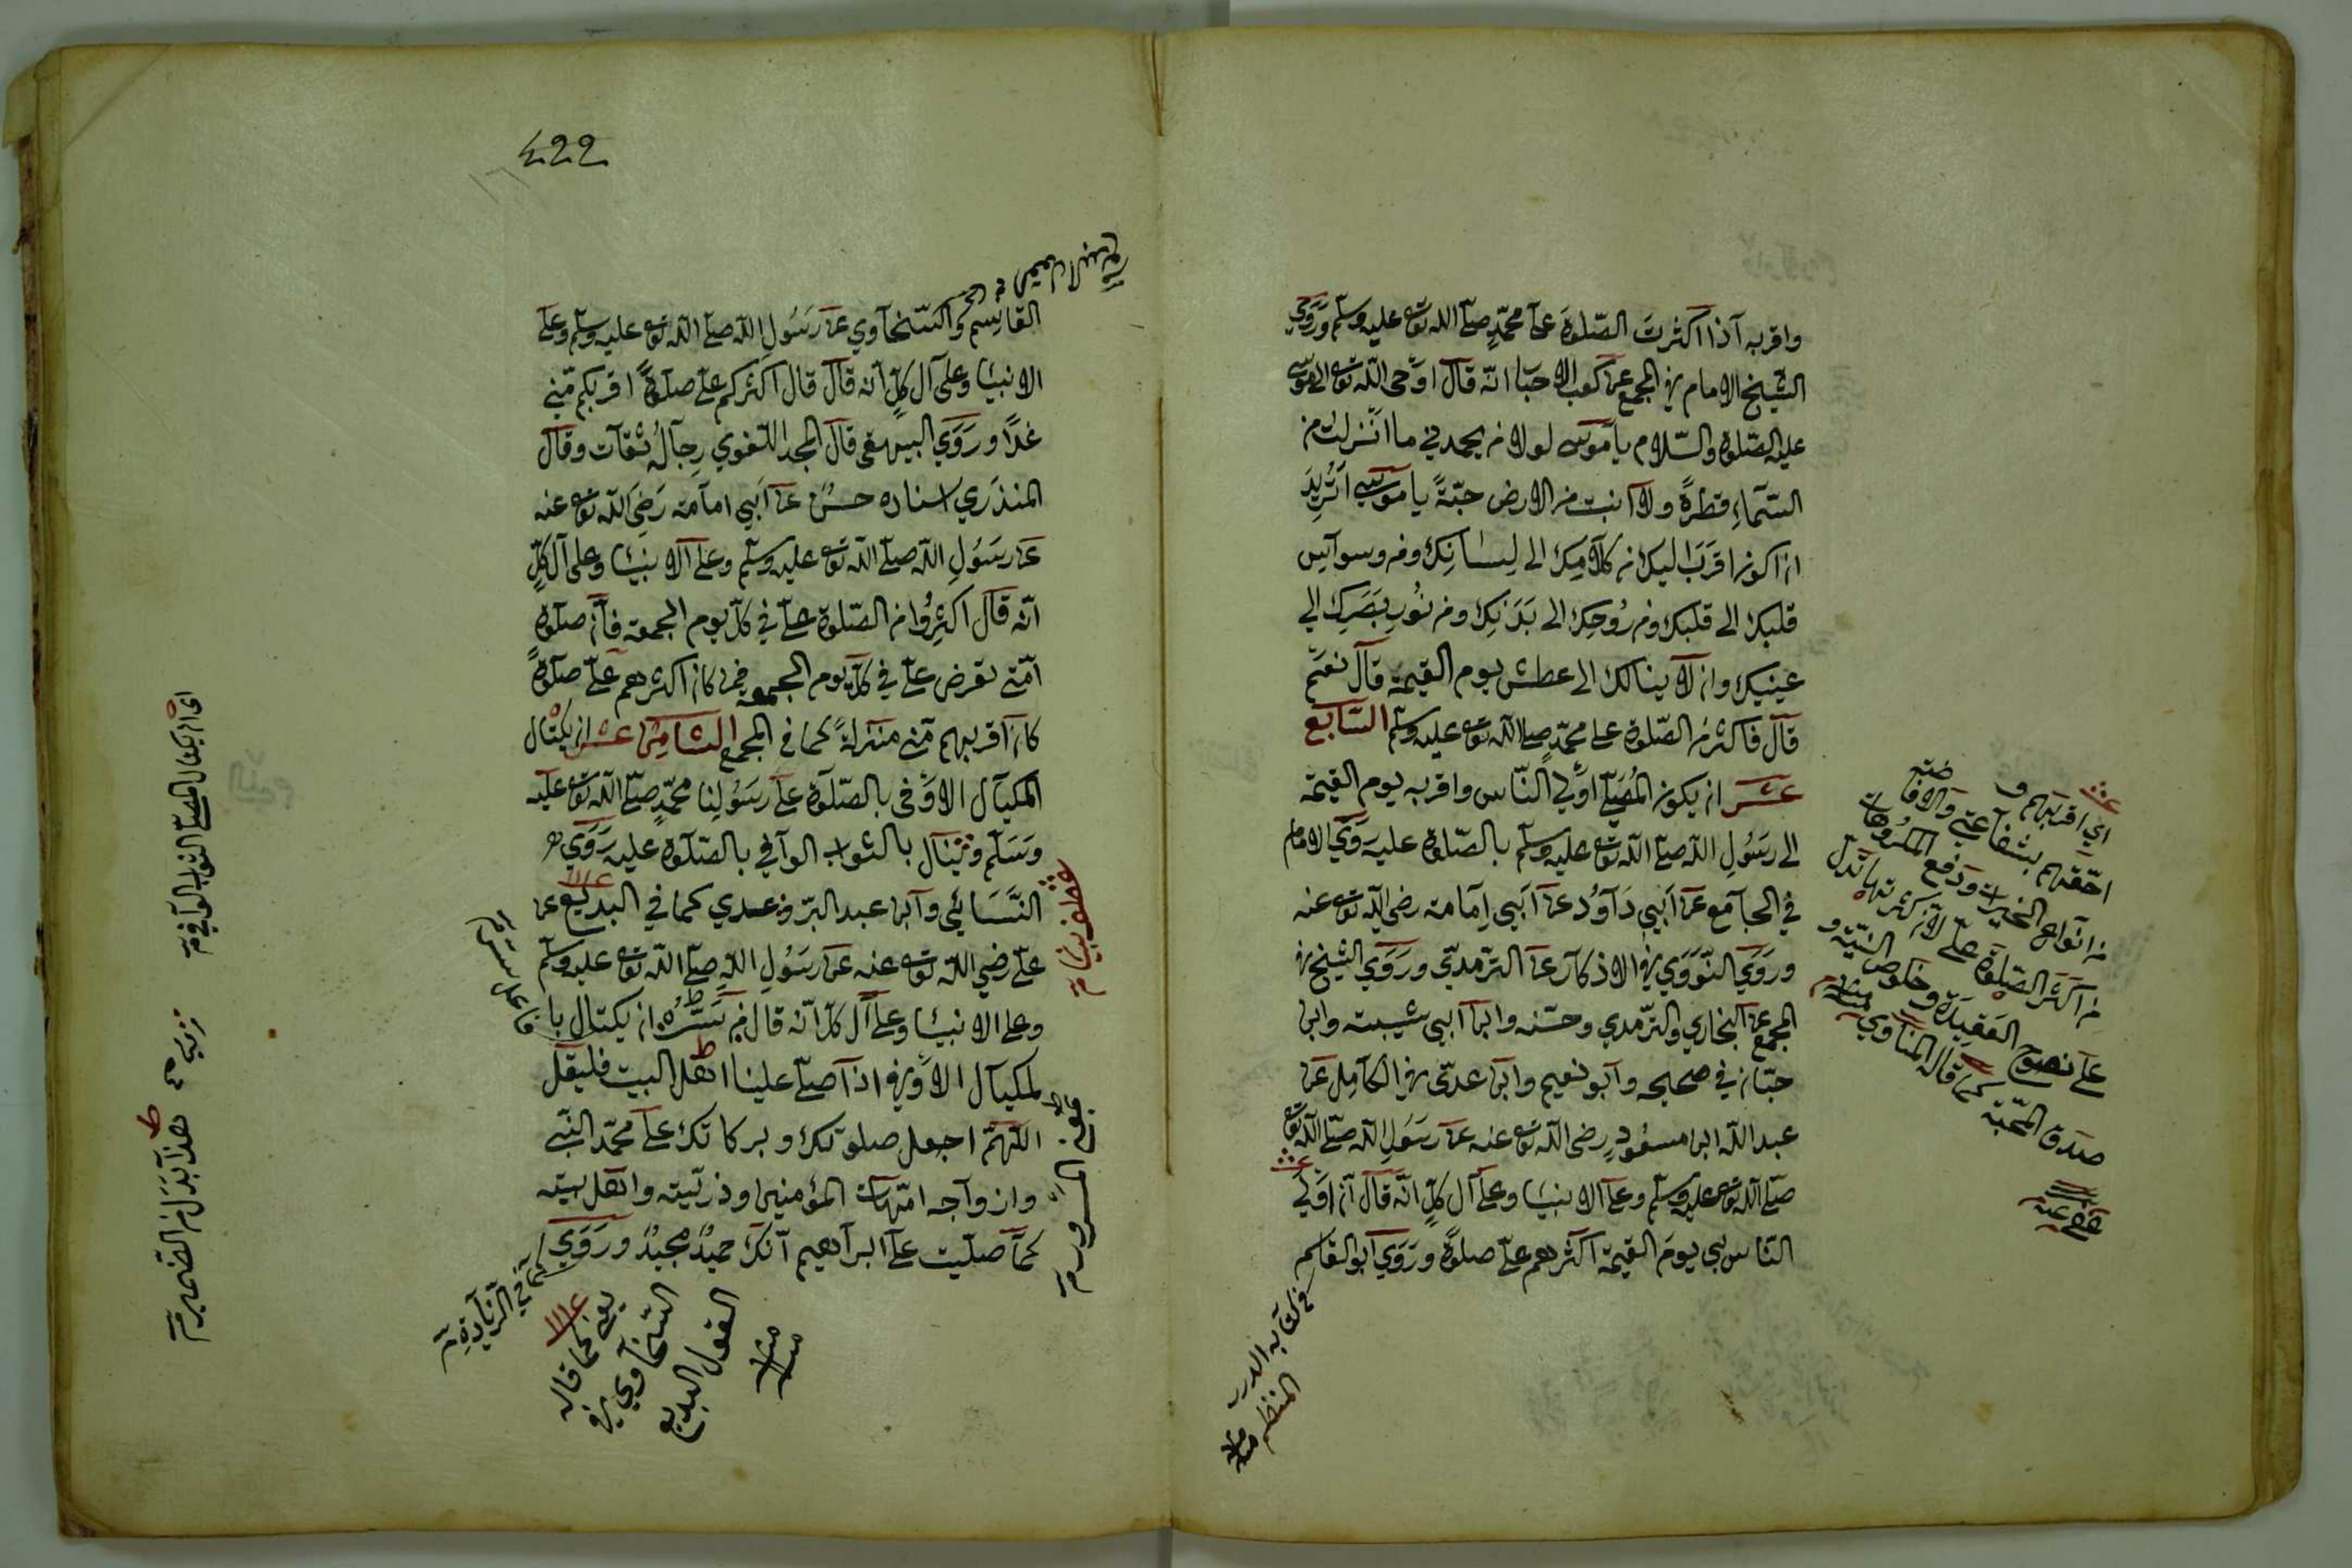 واقربه آذا اكثرت الصّلوة على محمّدٍ صلّى الله تعه عليه وسلّم وروى
الشيخ الامام في المجمع عن كعب الاحبا انّه قال اوحى الله تعه الى موسى
عليه الصّلوة والسّلام يا موسى لولا من يحمدني ما انزلت من
السّماء قطرةً ولا انبت من الارض حبّةً يا موسى اتريد
ان اكون اقرب اليك من كلامك الى لسانك ومن وسواس
قلبك الى قلبك ومن روحك الى بدنك ومن نور بصرك الى
عينيك وان لا ينالك الى عطش يوم القيمة قال نعم
قال فاكثر من الصّلوة على محمّدٍ صلى الله تعه عليه وسلّم السّابع
عشر ان يكون المُصلّي اولى النّاس واقربه يوم القيمة
الى رسول الله صلّى الله تعه عليه وسلّم بالصّلوة عليه روى الامام
في الجامع عن ابي داود عن ابي امامة رضى الله تعه عنه
وروى النّووي في الاذكار عن الترمذي وروى الشيخ في
المجمع عن البخاري والترمذي وحسّنه وابن ابي شيبة وابن
حبّان في صحيحه وابو نعيم وابن عدّى في الكامل عن
عبد الله ابن مسعودٍ رضى الله تعه عنه عن رسول الله صلّى الله تعه
صلّى الله تعه عليه وسلّم وعلى الانبيا وعلى آل كلٍّ انّه قال ان اولى
النّاس بي يوم القيمة اكثرهم عليّ صلوةً وروى ابو القاسم
في كتابه الدر
المنظم منه
اي اقربهم و
احقهم بشفاعتي والافا
ضة
من انواع الخيرات ودفع المكروهات
من اكثر الصلوة عليّ لانّ كثرتها تدل
على نصوح العقيدة وخلوص النيّة و
صدق المحبّة كما قاله المناوي منه
عفى عنه
422
القاسم والسّخاوي عن رسول الله صلّى الله تعه عليه وسلّم وعلى
الانبيا وعلى آل كلٍّ انه قال قال اكثركم عليّ صلوةً اقربكم منّي
غدًا وروى البيهقي قال المجد اللّغوي رجالُ ثقات وقال
المنذري اسناده حسنٌ عن ابي امامة رضي الله تعه عنه
عن رسول الله صلّى الله تعه عليه وسلّم وعلى الانبيا وعلى آل كلٍّ
انّه قال اكثروا من الصّلوة عليّ في كل يوم الجمعة فان صلوة
امّتي تعرض عليّ في كل يوم الجمعه فمن كان اكثرهم عليّ صلوةً
كان اقربهم منّي منزلةً كما في المجمع الثّامن عشر ان يكتال
المكيال الاوفى بالصّلوة على رسولنا محمّدٍ صلّى الله تعه عليه
وسلّم وينال بالثواب الوآفي بالصّلوة عليه روى
النّسائي وابن عبد البرّ وعدي كما في البديع عن
علي رضي الله تعه عنه عن رسول الله صلّى الله تعه عليه وسلّم
وعلى الانبيا وعلى آل كلّ انّه قال من سرّه ان يكتال با
لمكيال الاوفى اذا صلّى علينا اهل البيت فليقل
اللّهمّ اجعل صلوتك وبركاتك على محمّد النّبي
وازواجه امّهات المؤمنين وذريّته واهل بيته
كما صلّيت على ابرآهيم انّك حميدٌ مجيدٌ وروى
يعنى كما قاله
السّخاوي في
القول البديع
منه
اى ان يكتال المصلّى الثواب الوآفي
هذا بدل من الضمير